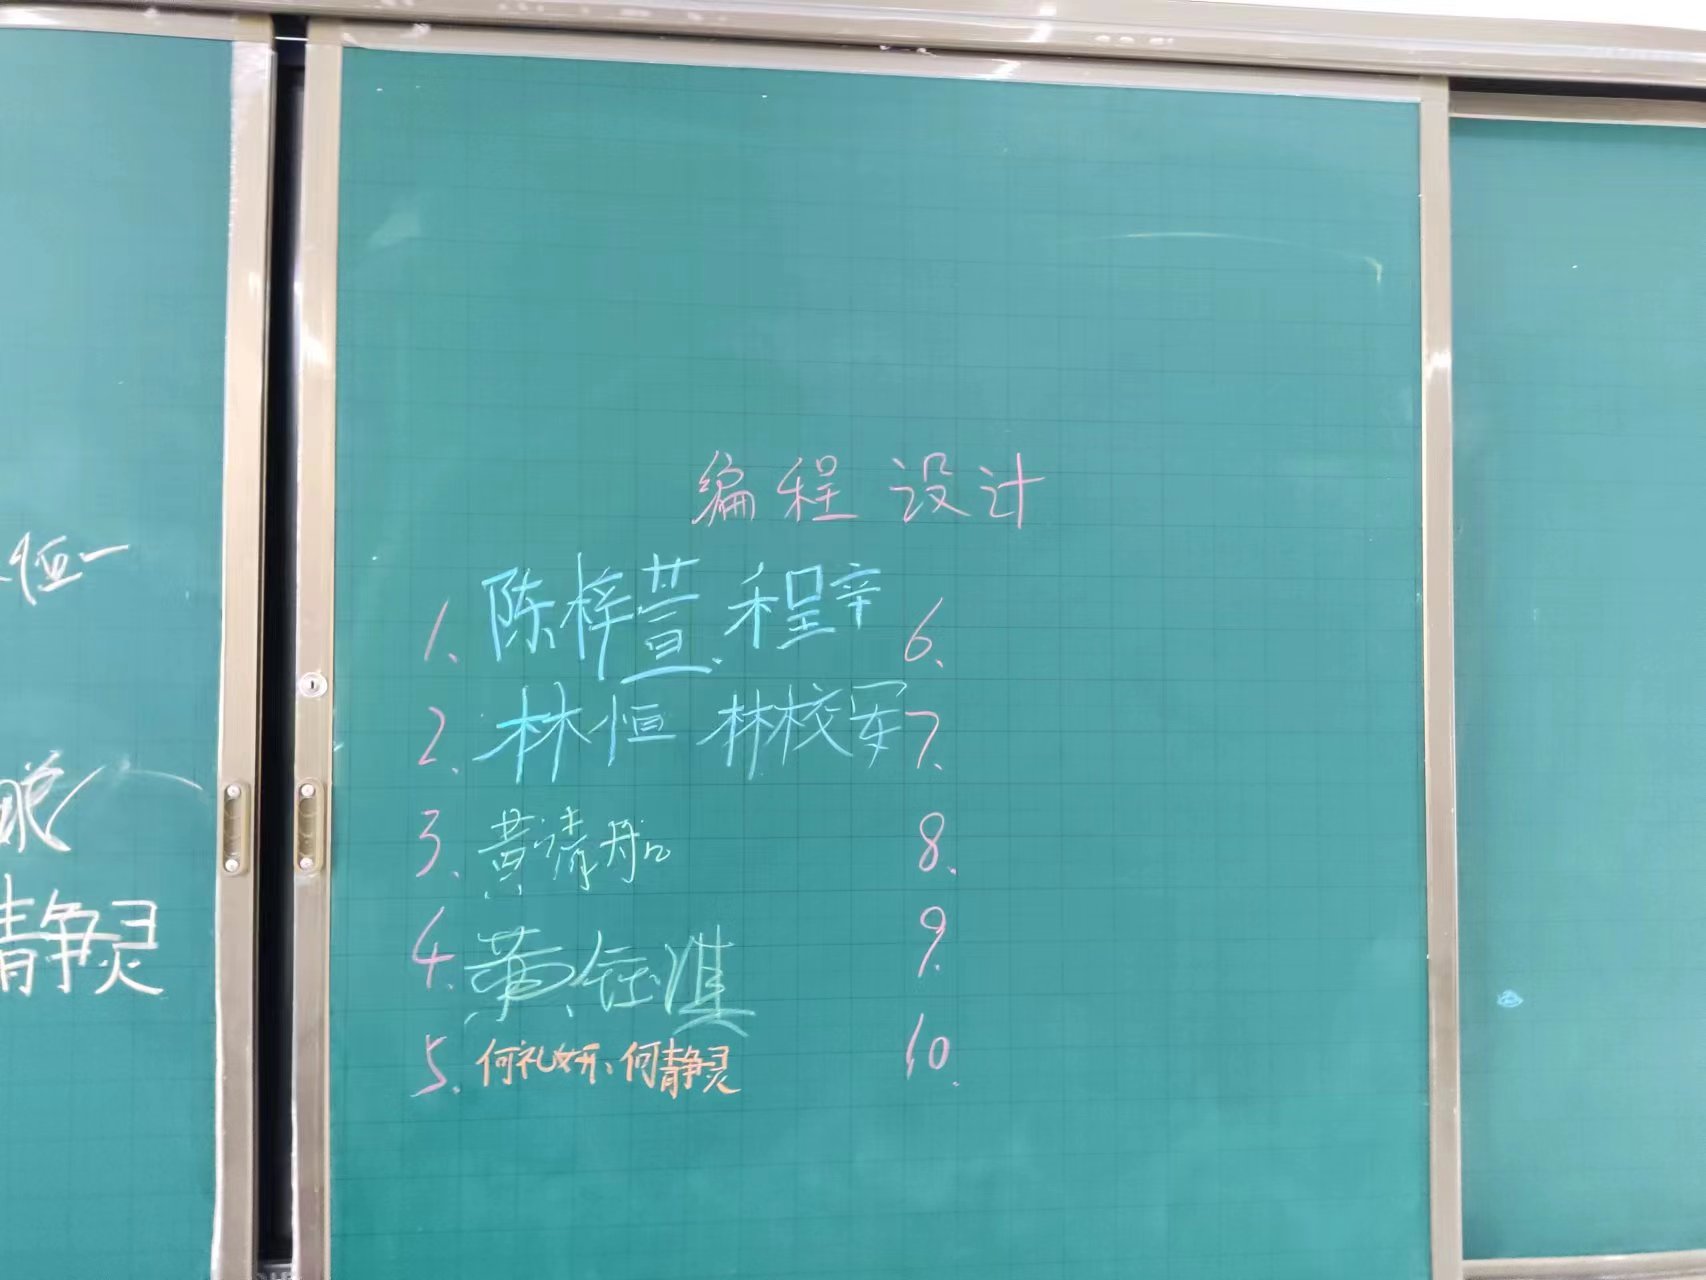 恒一
静灵
编程设计
1. 陈梓萱. 程辛
2. 林恒 林校军
3. 黄清船
4. 黄钰淇
5. 何礼妍、何静灵
6.
7.
8.
9.
10.